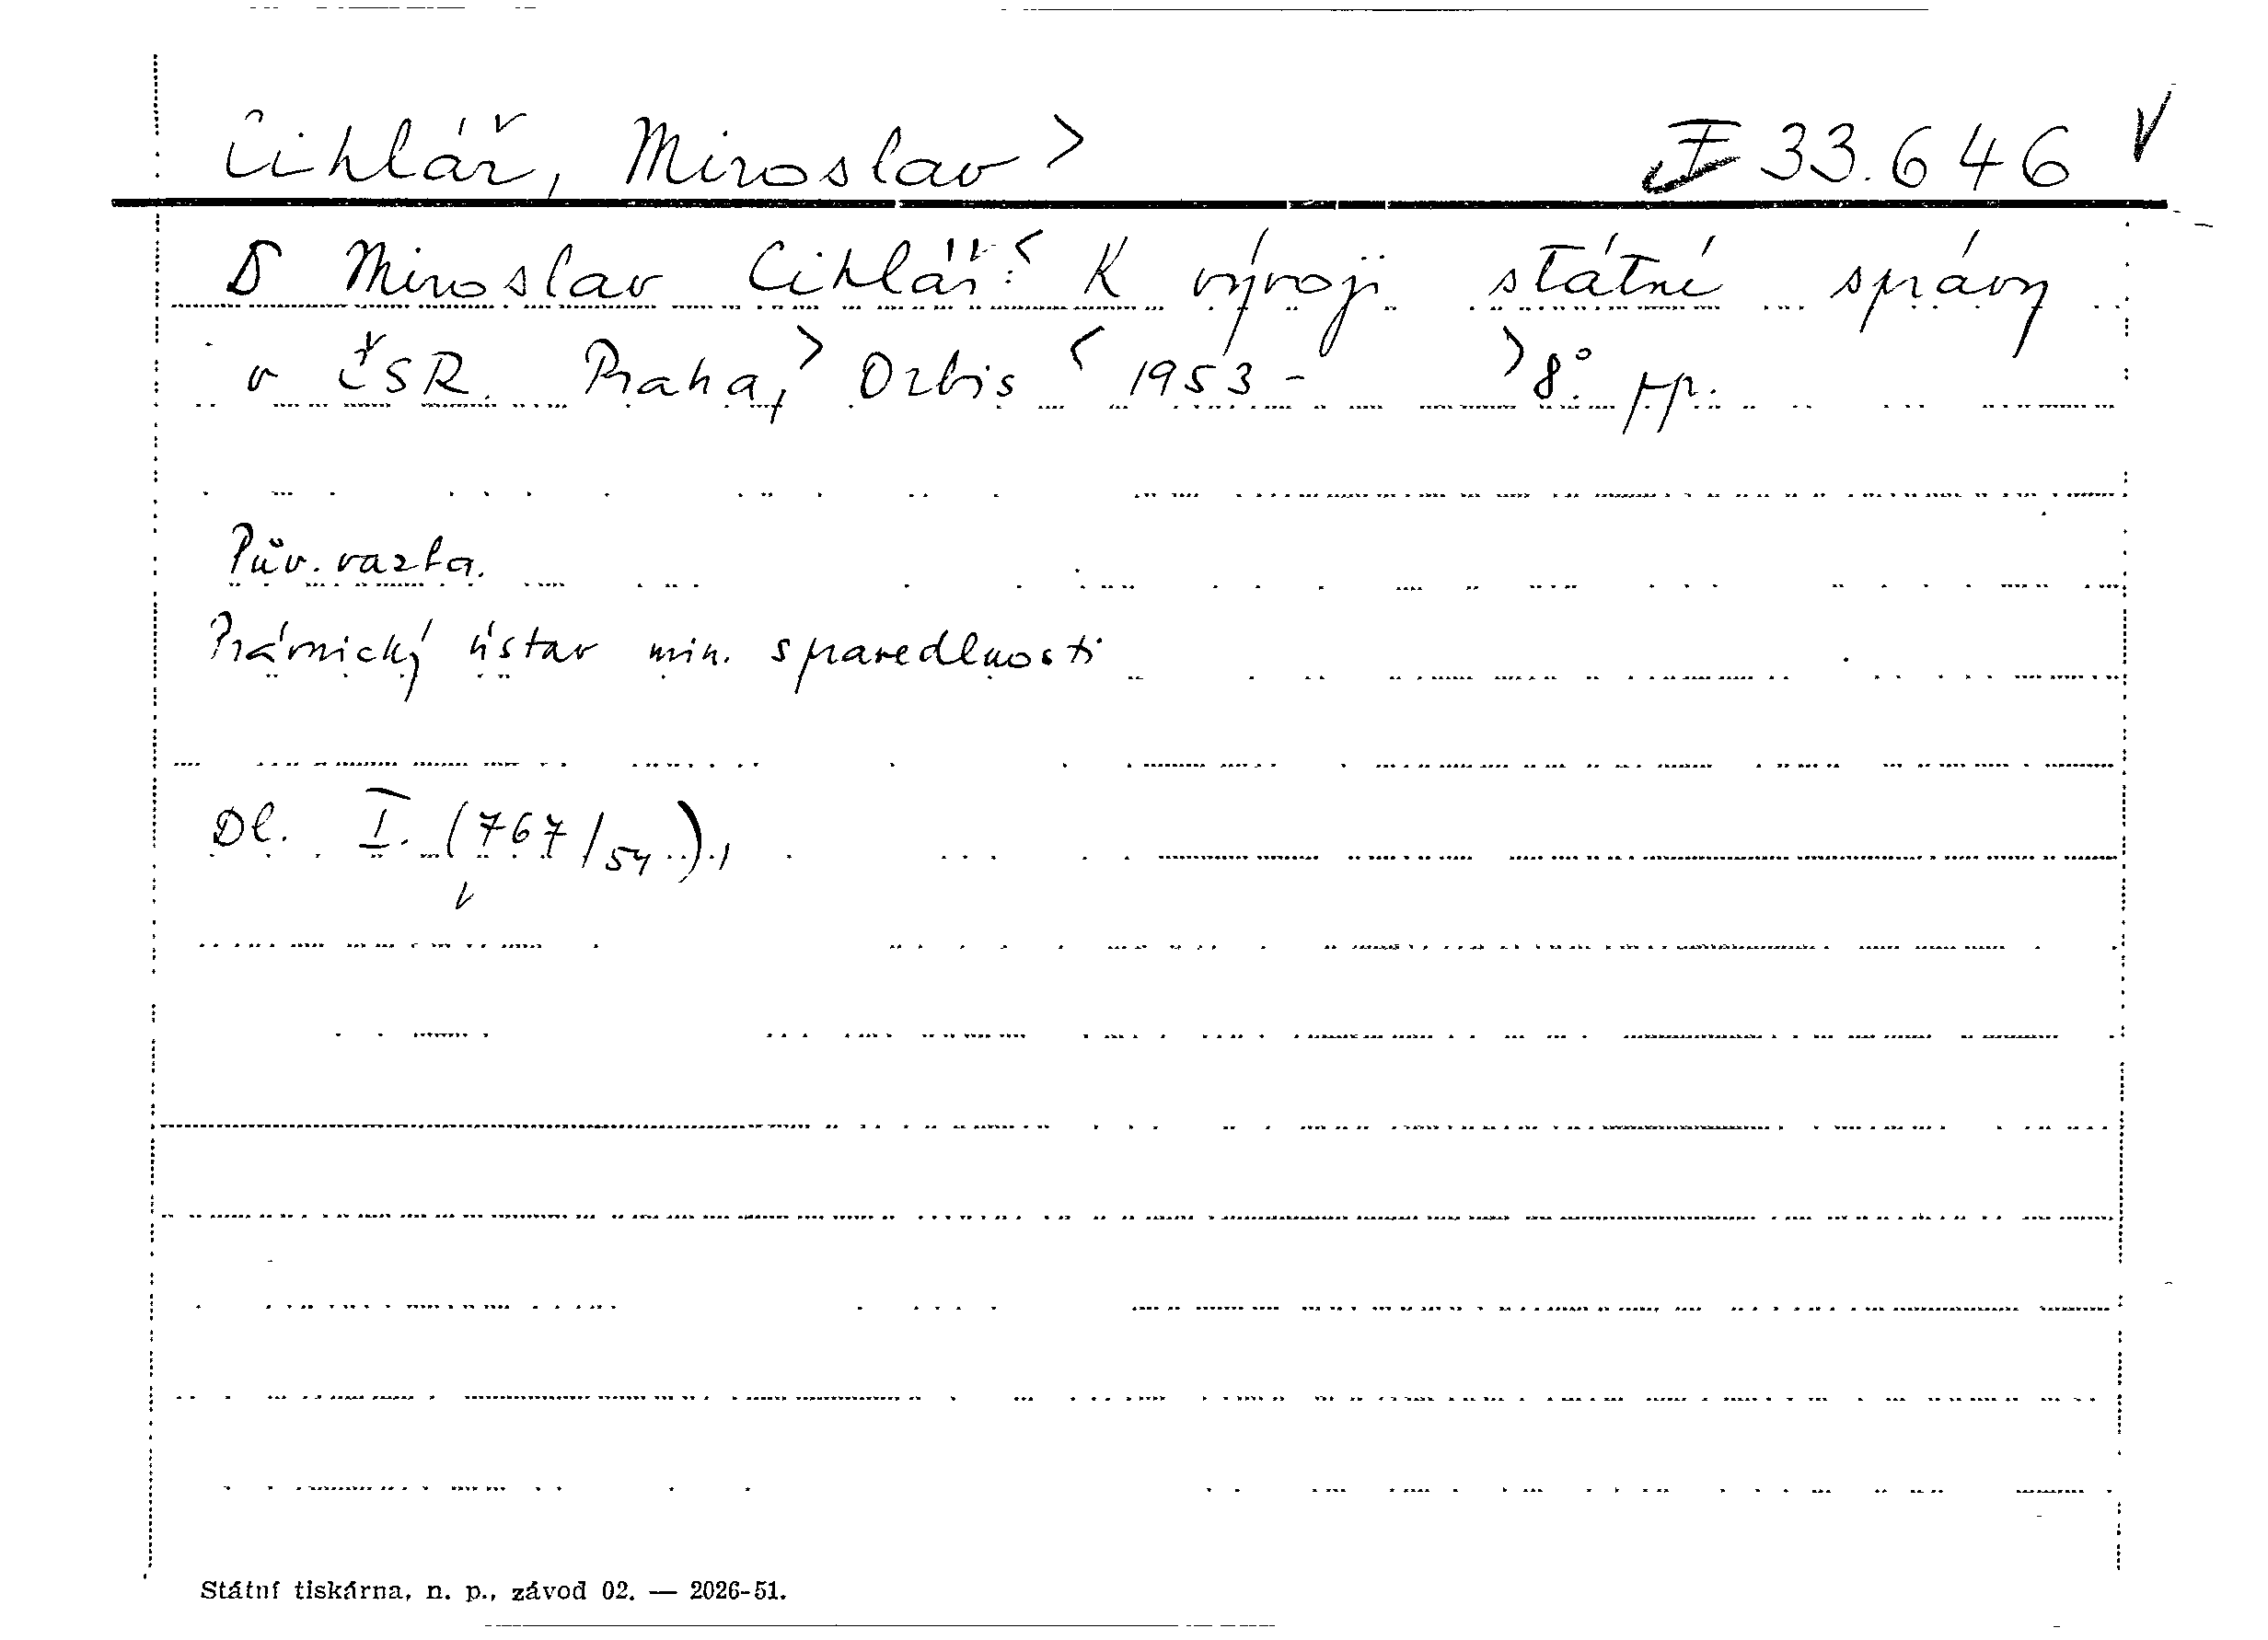 Cihlář, Miroslav > F 33.646
Miroslav Cihlář: < K vývoji státní správy
v ČSR. Praha, > Orbis < 1953 - > 8°. pp.
Pův. vazba.
Právnický ústav min. spravedlnosti
Dl. I. (767/54.).
Státní tiskárna, n. p., závod 02. — 2026-51.